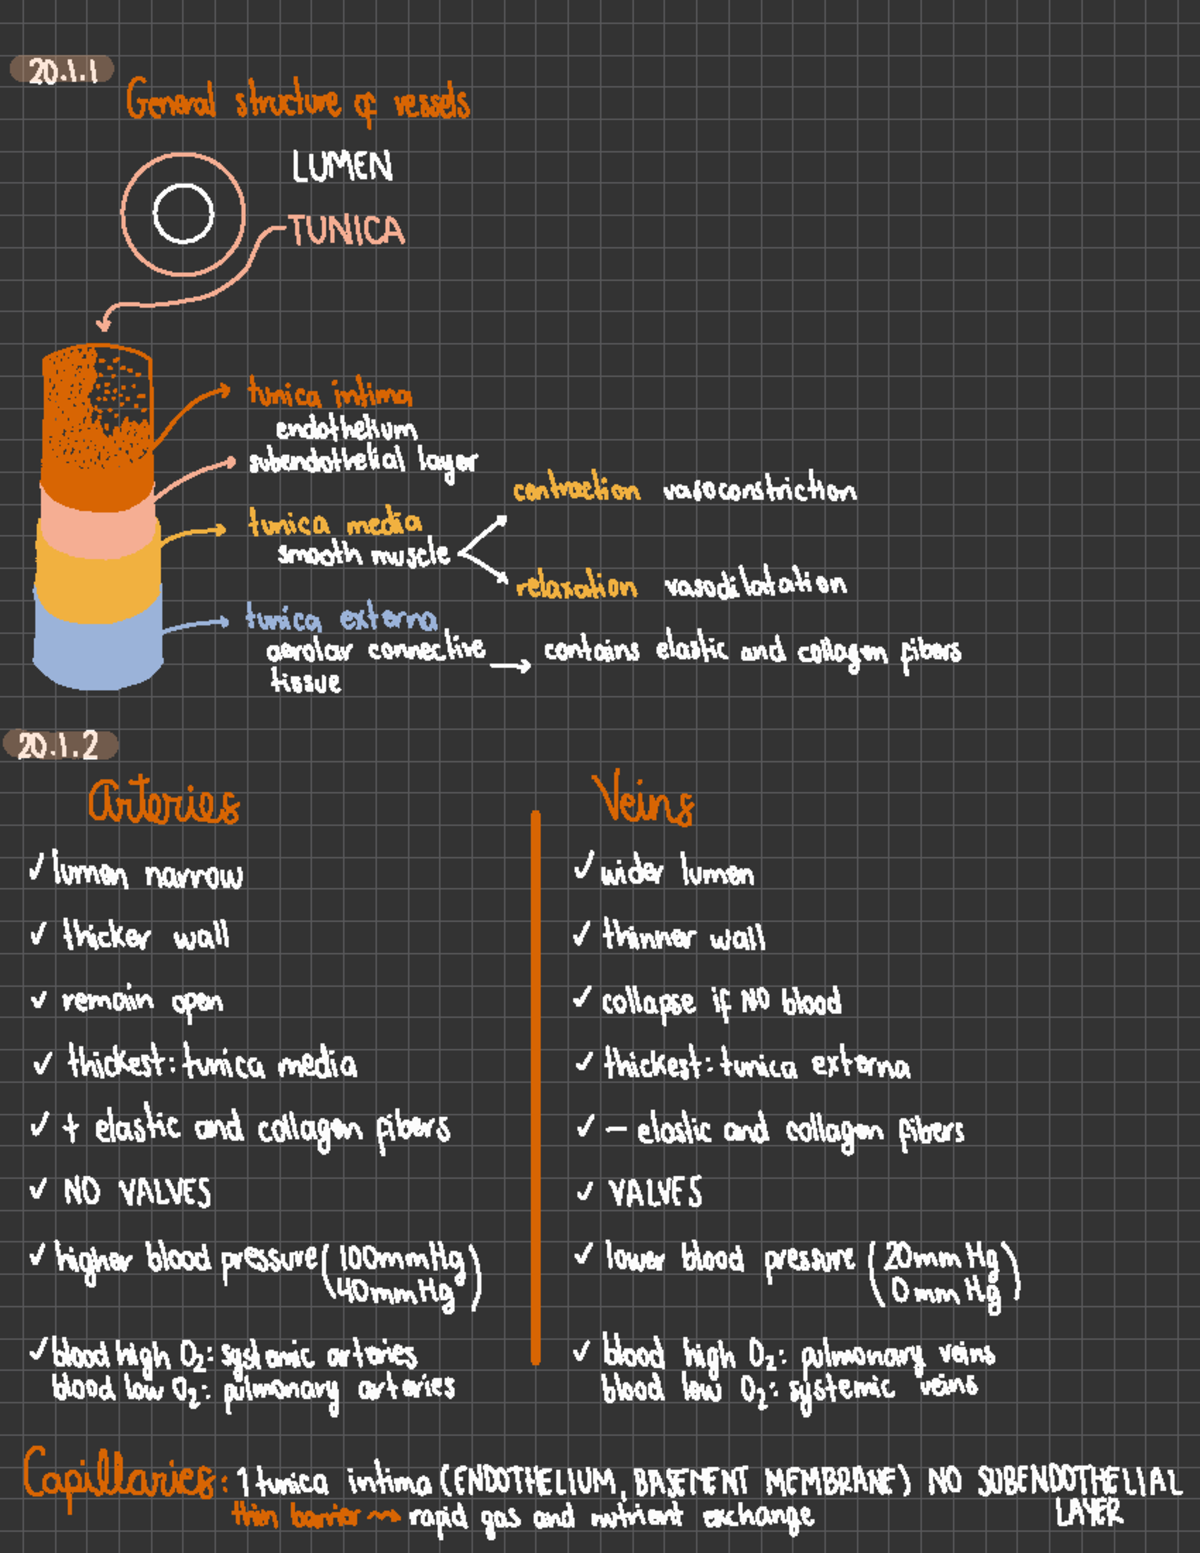 20.1.1
General structure of vessels
LUMEN
TUNICA
tunica intima
endothelium
subendothelial layer
contraction vasoconstriction
tunica media
smooth muscle
relaxation vasodilatation
tunica externa
aerolar connective → contains elastic and collagen fibers
tissue
20.1.2
Arteries
Veins
✓ lumen narrow
✓ wider lumen
✓ thicker wall
✓ thinner wall
✓ remain open
✓ collapse if NO blood
✓ thickest: tunica media
✓ thickest: tunica externa
✓ + elastic and collagen fibers
✓ − elastic and collagen fibers
✓ NO VALVES
✓ VALVES
✓ higher blood pressure (100mmHg
40mmHg)
✓ lower blood pressure (20mmHg
0mmHg)
✓ blood high O₂: systemic arteries
blood low O₂: pulmonary arteries
✓ blood high O₂: pulmonary veins
blood low O₂: systemic veins
Capillaries: 1 tunica intima (ENDOTHELIUM, BASEMENT MEMBRANE) NO SUBENDOTHELIAL
LAYER
thin barrier → rapid gas and nutrient exchange